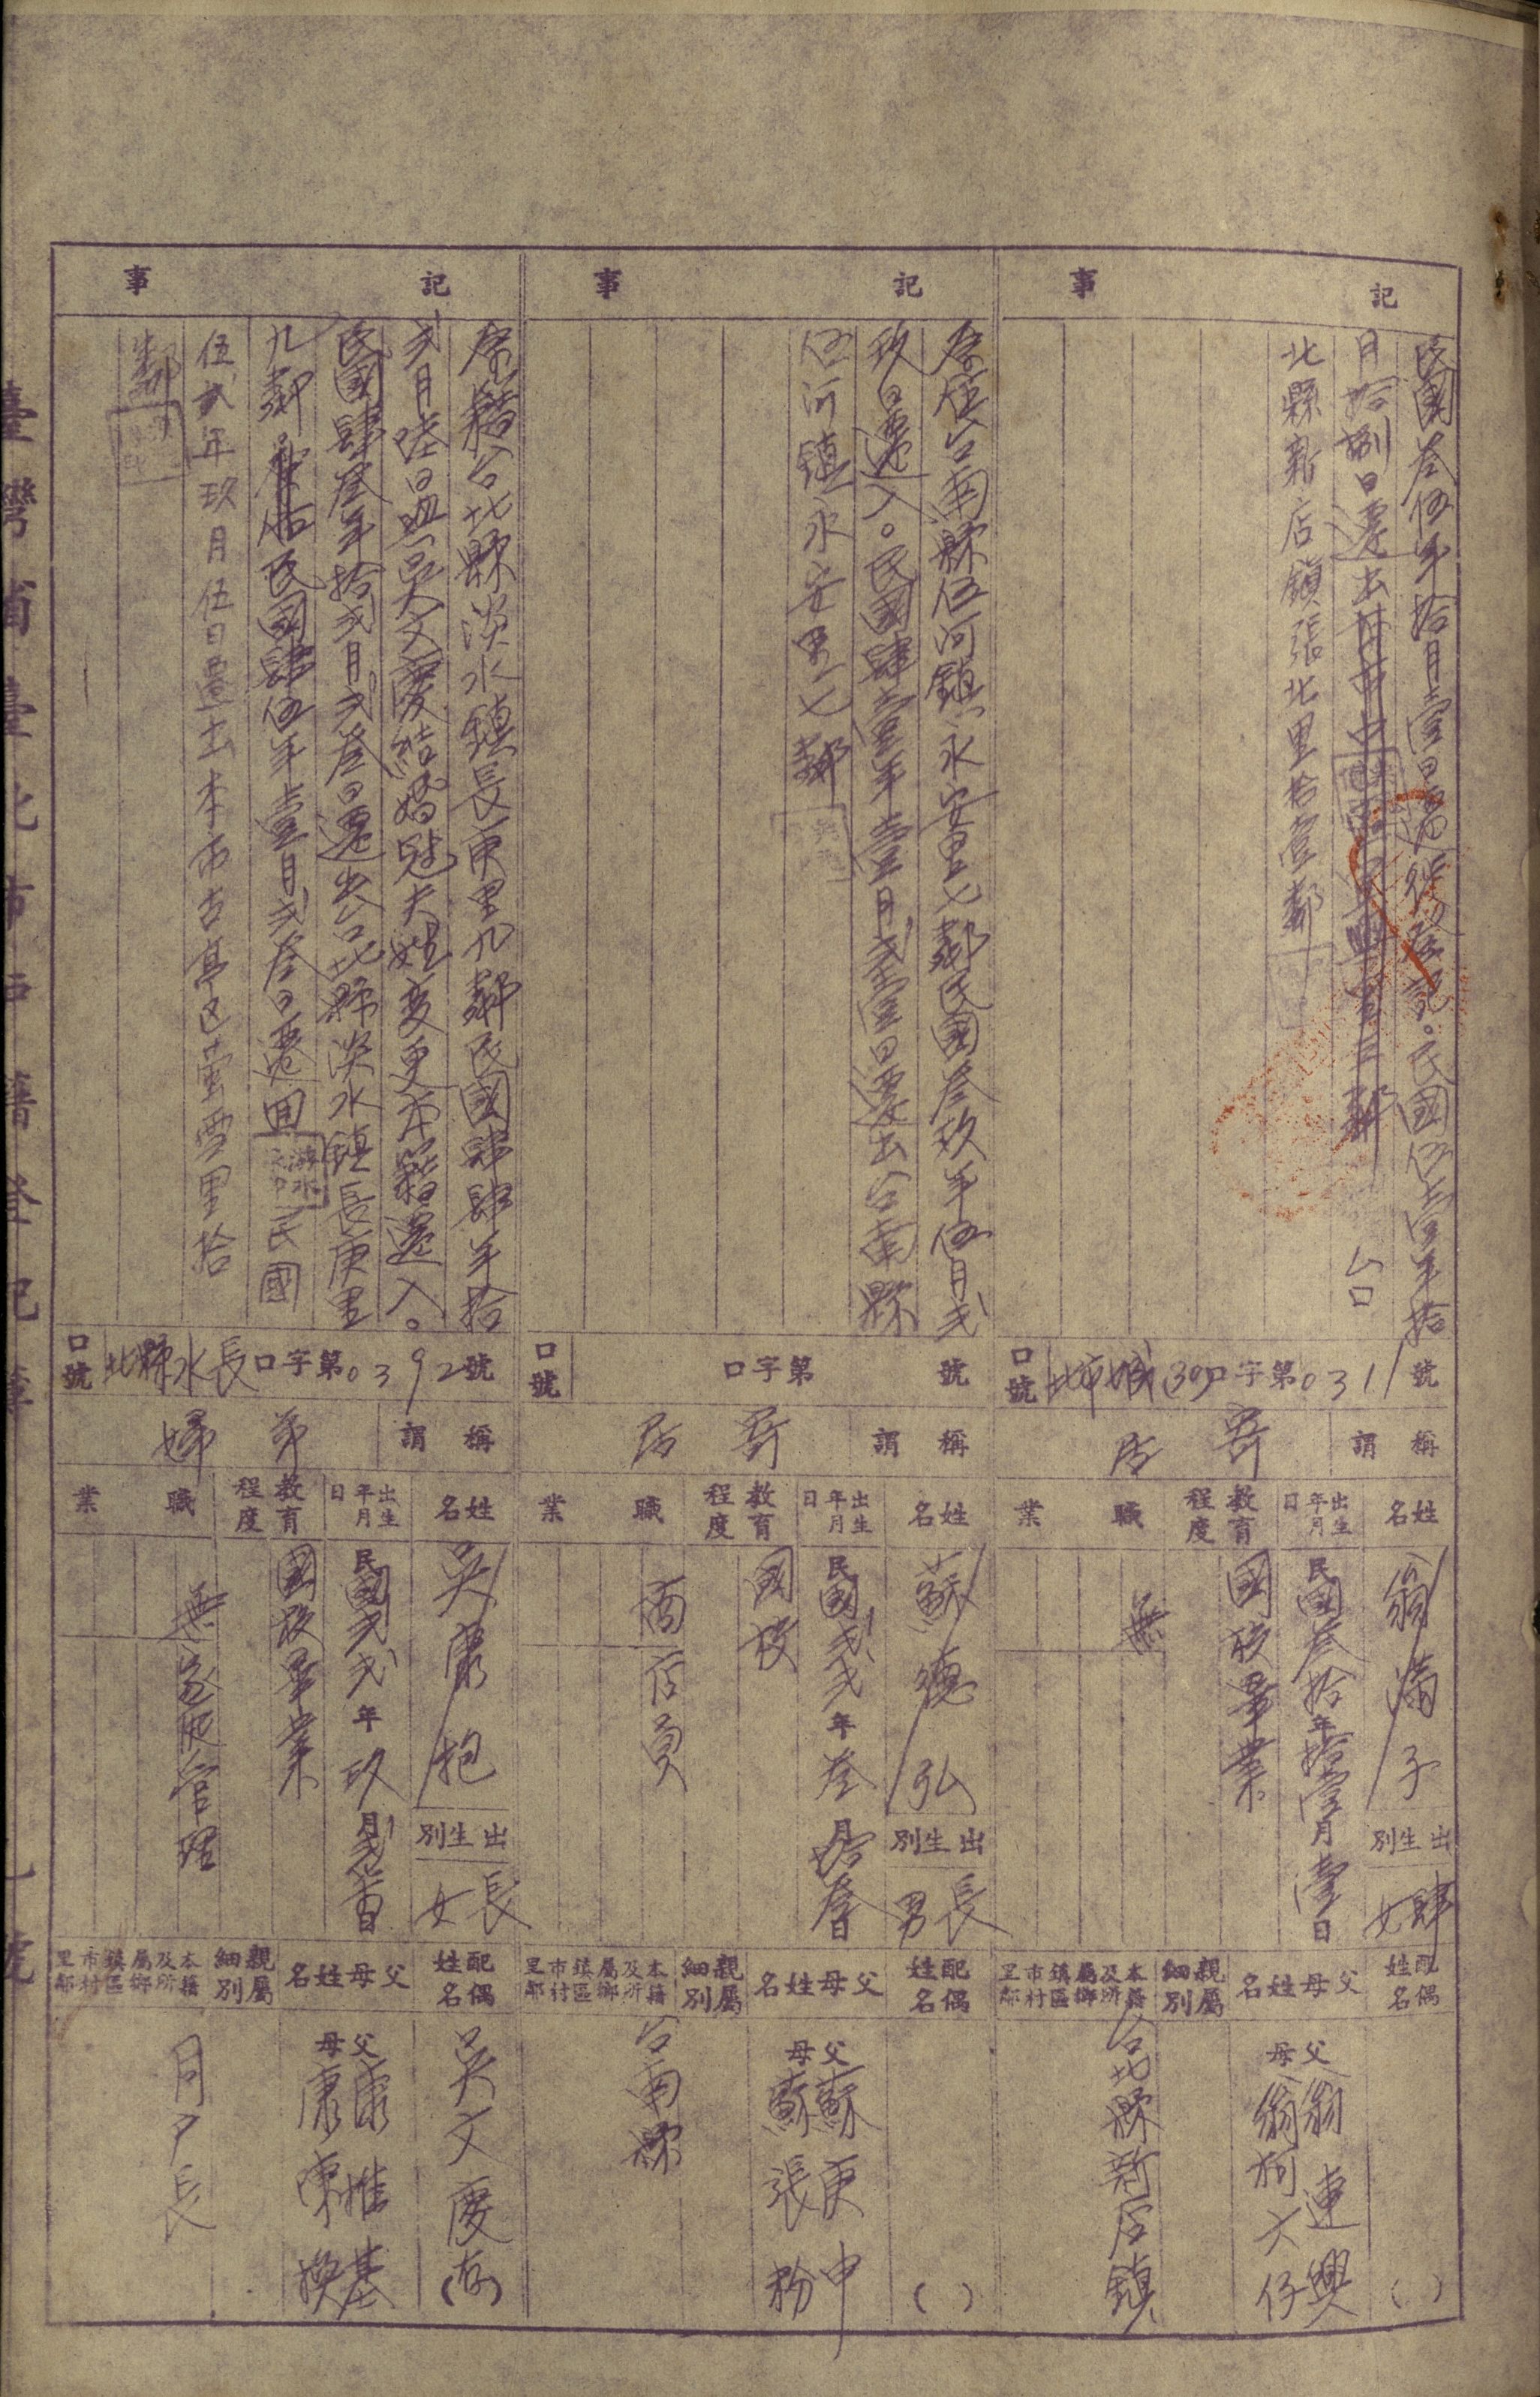 記事
民國叁伍年拾月壹日設籍登記。民國伍壹年拾
月拾捌日遷出 台
北縣新店鎮張北里拾壹鄰
口號 北市城(30)口字第0311號
稱謂 寄居
姓名 翁滿子
出生別 肆女
出生年月日 民國叁拾年拾壹月壹日
教育程度 國校畢業
職業 無
配偶姓名 ( )
父母姓名 父 翁連興
母 翁柯大仔
親屬細別
本籍及所屬鄉鎮區市村里鄰 台北縣新店鎮
記事
原住台南縣伍河鎮永安里七鄰民國叁玖年伍月弍
玖日遷入。民國肆壹年壹月弍壹日遷出台南縣
伍河鎮永安里七鄰
口號 口字第 號
稱謂 寄居
姓名 蘇德弘
出生別 長男
出生年月日 民國弍弍年叁月拾叁日
教育程度 國校
職業 商店員
配偶姓名 ( )
父母姓名 父 蘇庚申
母 蘇張粉
親屬細別
本籍及所屬鄉鎮區市村里鄰 台南縣
記事
原籍台北縣淡水鎮長庚里九鄰民國肆肆年拾
弍月陸日與吳文慶結婚冠夫姓變更本籍遷入。
民國肆叁年拾弍月弍叁日遷出台北縣淡水鎮長庚里
九鄰 民國肆伍年壹月弍叁日遷回 民國
伍弍年玖月伍日遷出本市古亭区螢雪里拾
鄰
口號 北縣水長口字第0392號
稱謂 弟婦
姓名 吳康抱
出生別 長女
出生年月日 民國弍弍年玖月弍柒日
教育程度 國校畢業
職業 無 家庭管理
配偶姓名 吳文慶(存)
父母姓名 父 康推基
母 康陳換
親屬細別
本籍及所屬鄉鎮區市村里鄰 同戶長